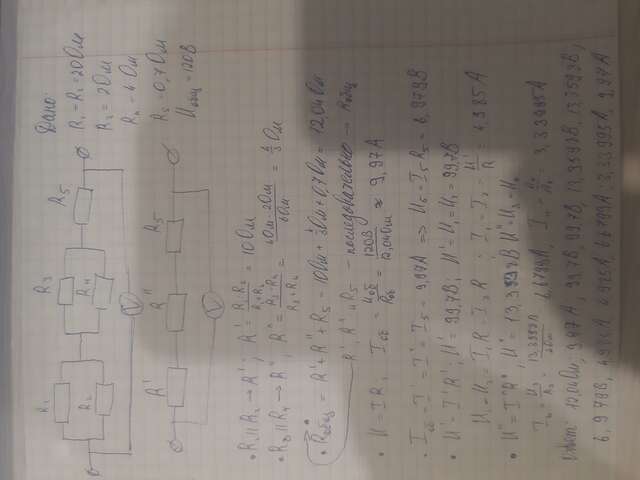 Дано:
R₁ = R₂ = 20 Ом
R₃ = 2 Ом
R₄ = 4 Ом
R₅ = 0,7 Ом
Uобщ = 120В
R₁
R₂
R₃
R₄
R₅
V
R'
R''
R₅
V
• R₁ || R₂ → R'; R' = R₁·R₂/R₁+R₂ = 10 Ом
• R₃ || R₄ → R''; R'' = R₃·R₄/R₃+R₄ = 4Ом·2Ом/6Ом = 4/3 Ом
• Rобщ = R' + R'' + R₅ = 10 Ом + 4/3 Ом + 0,7 Ом = 12,04 Ом
R', R'' и R₅ - последовательно → Rобщ
• U = IR; Iоб = Uоб/Rоб = 120В/12,04Ом ≈ 9,97А
• Iоб = I' = I'' = I₅ = 9,97А => U₅ = I₅R₅ = 6,979В
• U' = I'R'; U' = 99,7В; U' = U₁ = U₂ = 99,7В
I₁ = I₂ = U'/R = 4,985А
• U'' = I''R''; U'' = 13,3598В U'' = U₃ = U₄
I₃ = U₃/R₃ = 6,6799А I₄ = U₄/R₄ = 3,33995А
Ответ: 12,04 Ом, 9,97А, 99,7В, 99,7В, 13,3598В, 13,3598В,
6,979В, 4,985А, 4,985А, 6,6799А, 3,33995А, 9,97А